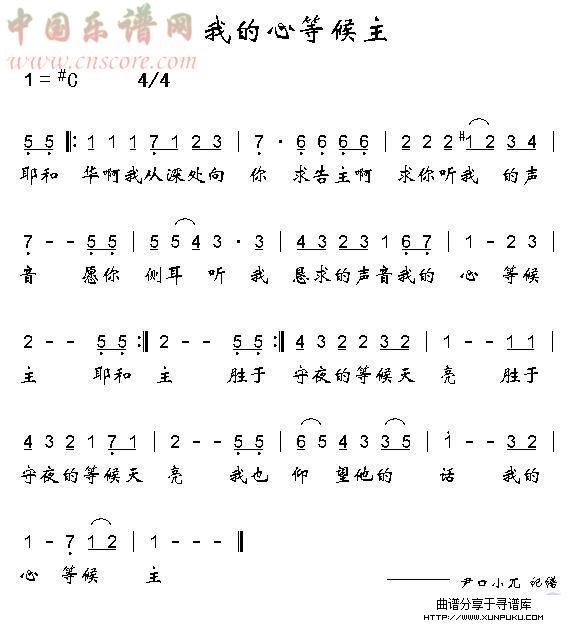 中国乐谱网
www.cnscore.com
我的心等候主
1=#C 4/4
5 5 |: 1 1 1 7 1 2 3 | 7 · 6 6 6 6 | 2 2 2 #1 2 3 4 |
耶和 华啊我从深处向 你 求告主啊 求你听我 的声
7 - - 5 5 | 5 5 4 3 · 3 | 4 3 2 3 2 1 6 7 | 1 - 2 3 |
音 愿你 侧耳 听 我 恳求的声音我的 心 等候
2 - - 5 5 :| 2 - - 5 5 :| 4 3 2 2 3 2 | 1 - - 1 1 |
主 耶和 主 胜于 守夜的等候天 亮 胜于
4 3 2 1 7 1 | 2 - - 5 5 | 6 5 4 3 3 5 | 1 - - 3 2 |
守夜的等候天 亮 我也 仰 望他的 话 我的
1 - 7 1 2 | 1 - - - ‖
心 等候 主
尹口小兀 记谱
曲谱分享于寻谱库
HTTP://WWW.XUNPUKU.COM